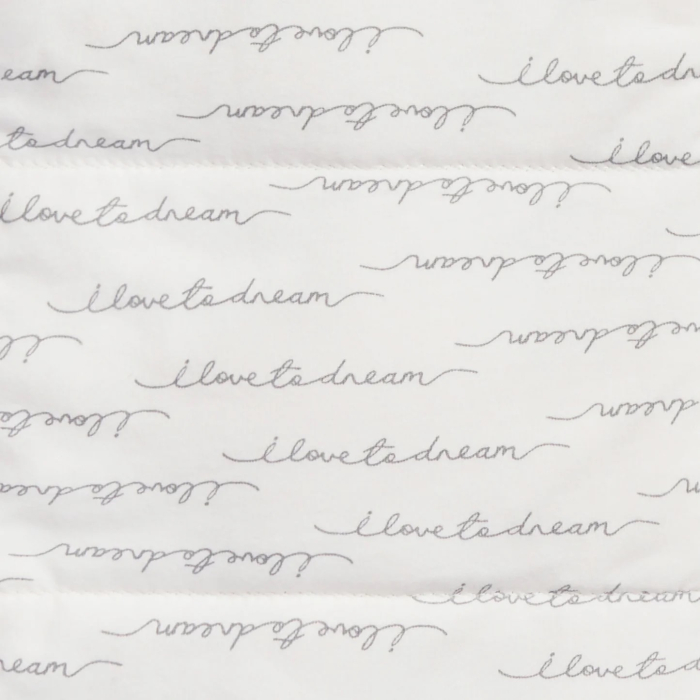 i love to dream
eam
i love to dr
i love to dream
to dream
i love
i love to dream
i love to dream
i love to dream
i love to dream
i love to dream
i love to dream
i love to dream
i love to
i love to dream
i love to dream
i love to dream
i love to dream
i love to dream
ream
i love to d